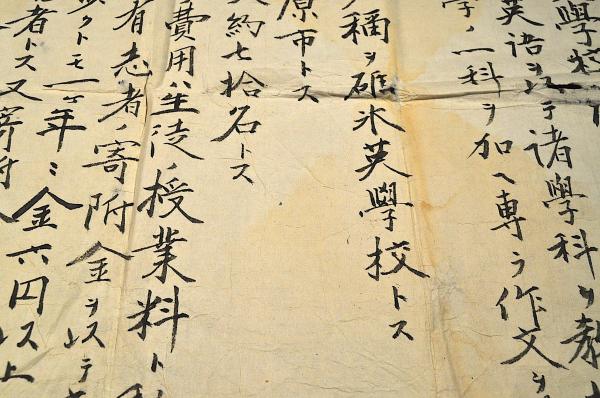 學校
英語ヲ以テ諸學科ヲ教
學ノ一科ヲ加ヘ専ラ作文ヲ
稱ヲ碓氷英學校トス
原市トス
約七拾名トス
費用ハ生徒ノ授業料ト
有志者ノ寄附金ヲ以テ
クトモ一ヶ年ニ金六円以上
者トス又寄附